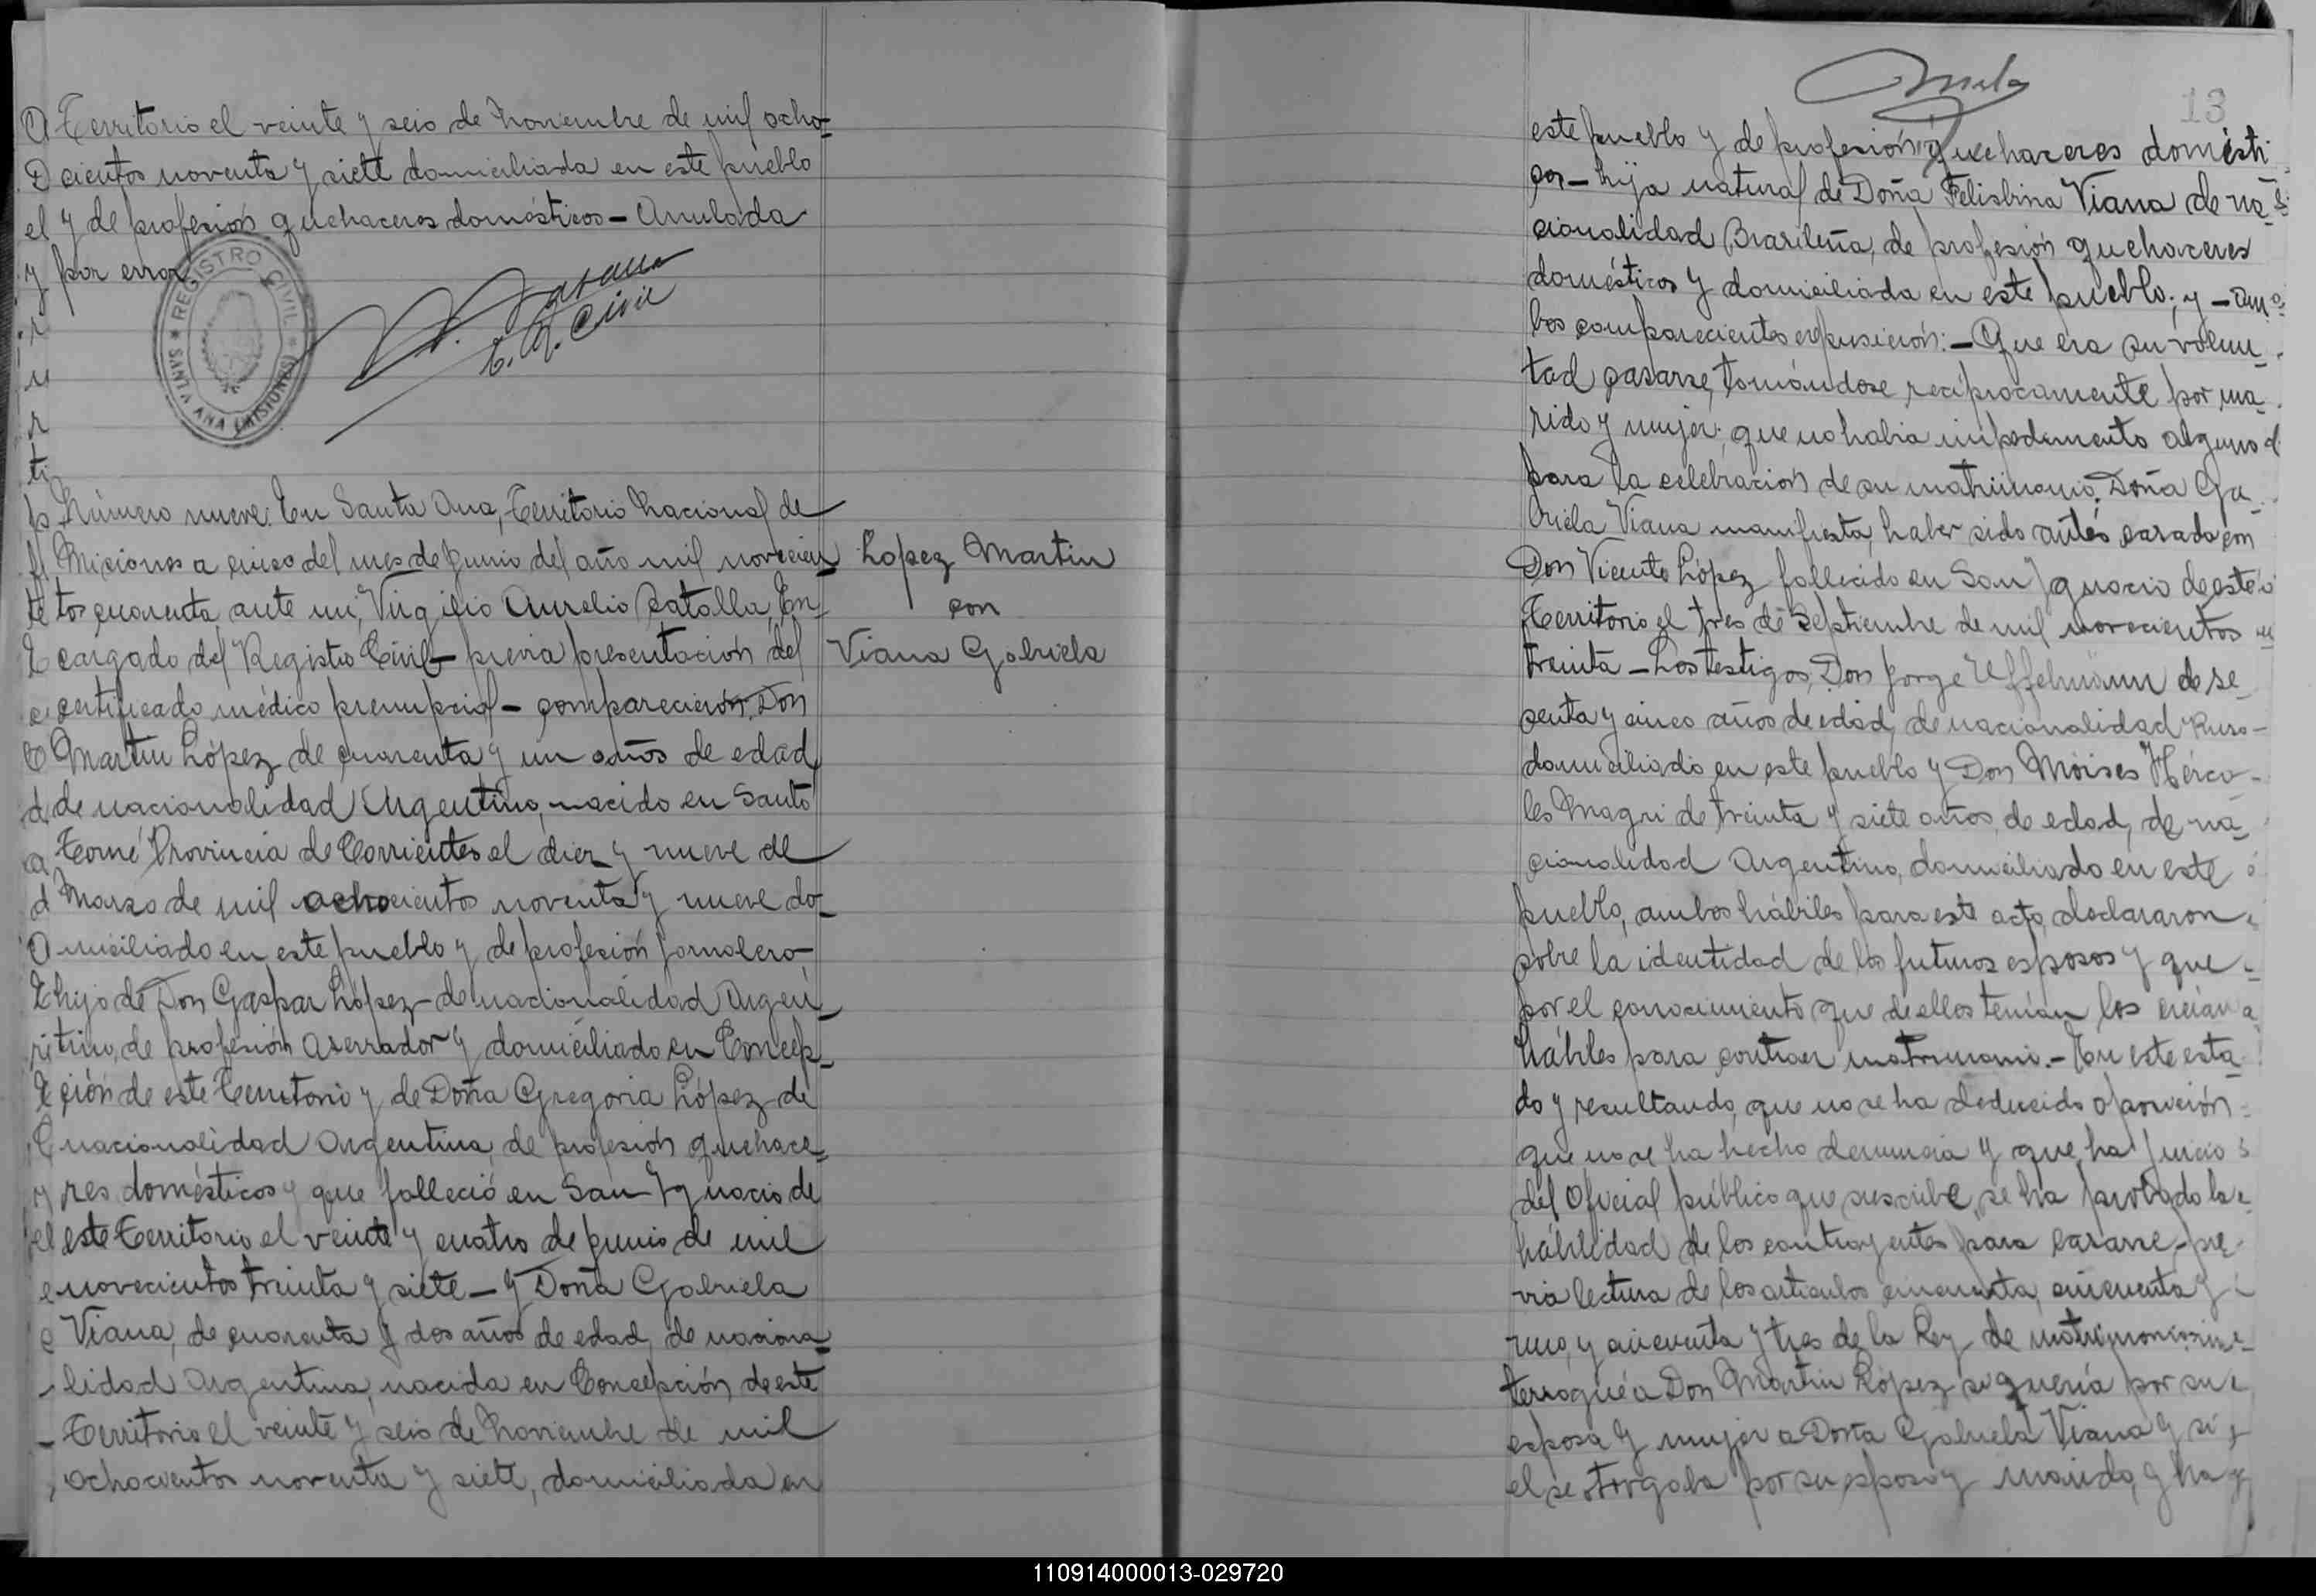 Territorio el veinte y seis de Noviembre de mil ocho-
cientos noventa y siete domiciliada en este pueblo
y de profesión quehaceres domésticos - Anulada
por error
REGISTRO CIVIL
SANTA ANA (MISIONES)
E. R. Civil
Número nueve. En Santa Ana, Territorio Nacional de
Misiones a cinco del mes de Junio del año mil novecien-
tos cuarenta, ante mi, Virgilio Aurelio Catalla, En-
cargado del Registro Civil - previa presentación del
certificado médico prenupcial - comparecieron: Don
Martin López de cuarenta y un años de edad
de nacionalidad Argentino, nacido en Santo
Tomé Provincia de Corrientes el diez y nueve de
Marzo de mil ochocientos noventa y nueve do-
miciliado en este pueblo y de profesión jornalero-
hijo de Don Gaspar López - de nacionalidad Argen-
tino, de profesión aserrador y domiciliado en Concep-
ción de este Territorio y de Doña Gregoria López de
nacionalidad Argentina, de profesión quehace-
res domésticos y que falleció en San Ignacio de
este Territorio el veinte y cuatro de Junio de mil
novecientos treinta y siete - y Doña Gabriela
Viana, de cuarenta y dos años de edad, de naciona-
lidad Argentina, nacida en Concepción, de este
Territorio el veinte y seis de Noviembre de mil
ochocientos noventa y siete, domiciliada en
Lopez Martin
con
Viana Gabriela
13
este pueblo y de profesión quehaceres domésti-
cos - hija natural de Doña Felisbina Viana de na-
cionalidad Brasileña, de profesión quehaceres
domésticos y domiciliada en este pueblo; y - am-
bos comparecientes expusieron: - Que era su volun-
tad casarse, tomándose reciprocamente por ma-
rido y mujer; que no habia impedimento alguno
para la celebración de su matrimonio. Doña Ga-
briela Viana manifiesta, haber sido antes casada con
Don Vicente López fallecido en San Ignacio de este
Territorio el tres de Septiembre de mil novecientos
treinta - Los testigos, Don Jorge Uffelmann de se-
senta y cinco años de edad, de nacionalidad Ruso-
domiciliado en este pueblo y Don Moises Hércu-
les Magri de treinta y siete años de edad, de na-
cionalidad Argentino, domiciliado en este
pueblo, ambos hábiles para este acto, declararon
sobre la identidad de los futuros esposos y que
por el conocimiento que de ellos tenían los creían
hábiles para contraer matrimonio. - En este esta-
do y resultando, que no se ha deducido oposición
que no se ha hecho denuncia y que, ha juicio
del Oficial público que suscribe, se ha probado la
habilidad de los contrayentes para casarse - pre-
via lectura de los articulos cincuenta, cincuenta y
uno, y cincuenta y tres de la Ley de matrimonio, in-
terrogué a Don Martin López si quería por su
esposa y mujer a Doña Gabriela Viana y si
el se otorgaba por su esposo y marido, y ha
110914000013-029720